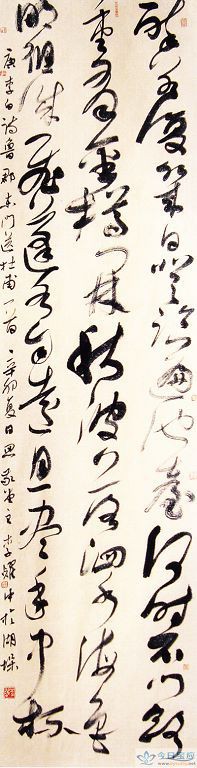 醉別復幾日登臨遍池臺何時石門路
重有金樽開秋波落泗水海色
明徂徕飛蓬各自遠且盡手中杯
唐李白詩魯郡東門送杜甫一首 辛卯夏日思 堂主李耀中於湖